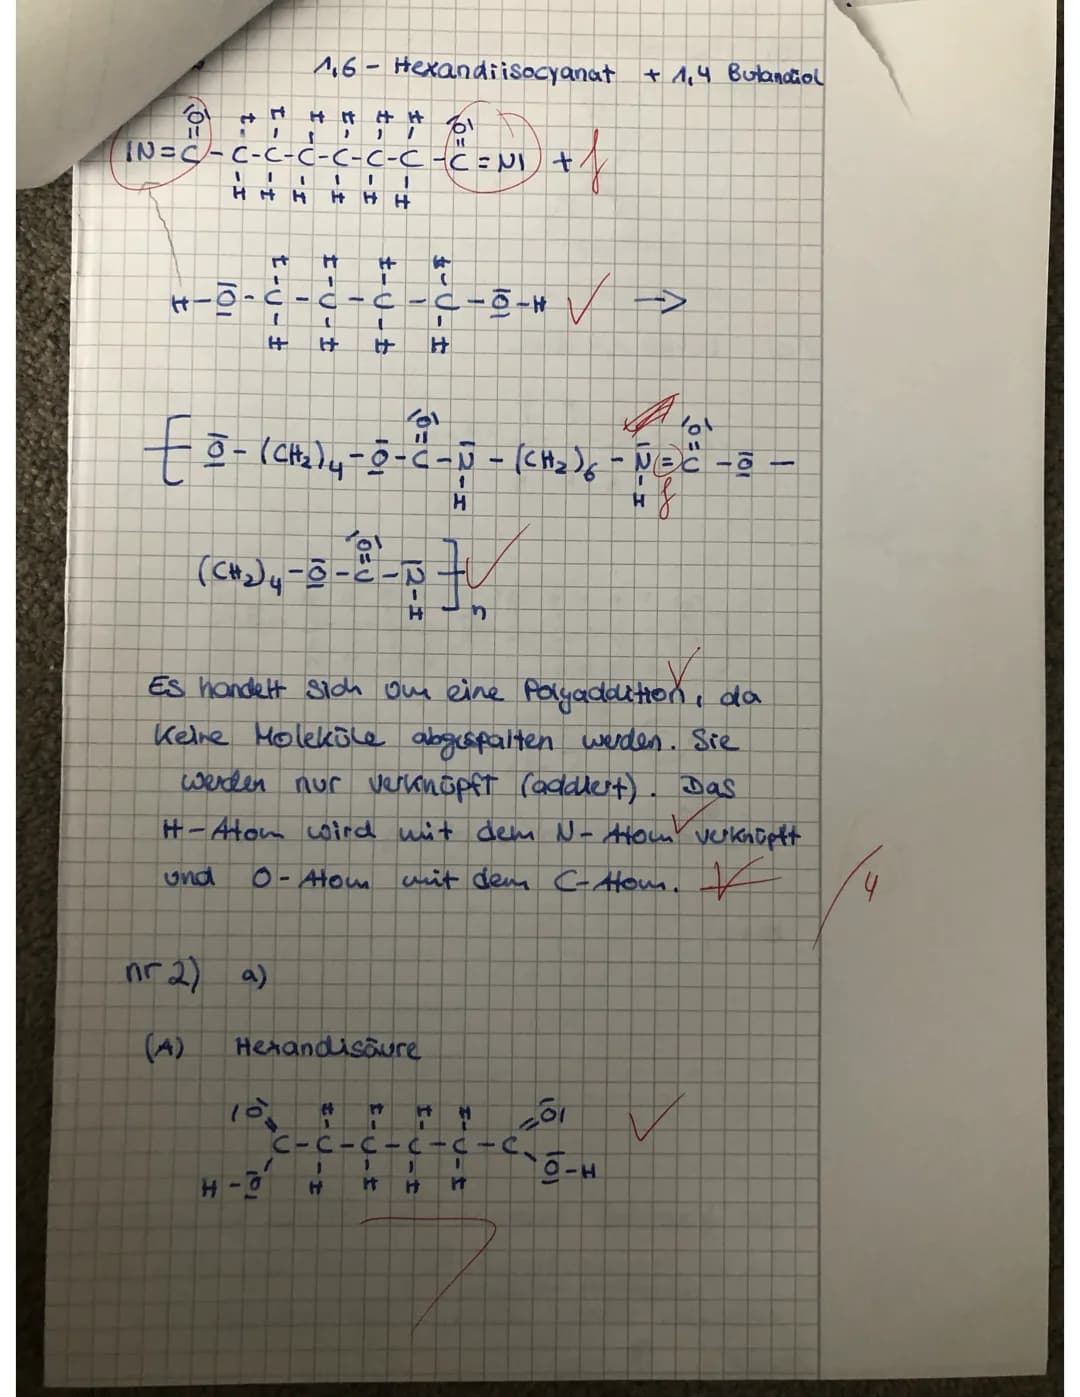 1,6 - Hexandiisocyanat + 1,4 Butandiol
|O| H H H H H H |O|
|N=C-C-C-C-C-C-C-C=N| + f
H H H H H H
H H H H
H-O-C-C-C-C-O-H ✓ →
H H H H
|O| |O|
[O-(CH₂)₄-O-C-N-(CH₂)₆-N=C-O-
H H f
|O|
(CH₂)₄-O-C-N]n ✓
H
Es handelt sich um eine Polyaddition, da
keine Moleküle abgespalten werden. Sie
werden nur verknüpft (addiert). Das
H-Atom wird mit dem N-Atom verknüpft
und O-Atom mit dem C-Atom.
/4
nr 2) a)
(A) Hexandisäure
|O H H H H O|
C-C-C-C-C-C
H-O H H H H O-H